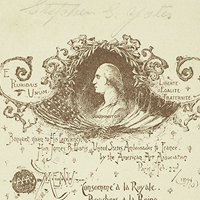 Stephen B. Yates
E
Pluribus
Unum
Liberté
Egalité
Fraternité
Washington
Banquet given to His Excellency
Hon. James B. Eustis, United States Ambassador to France
by the American Art Association
Paris Feb. 22nd
1894
Menu
Consommé à la Royale.
Bouchées à la Reine